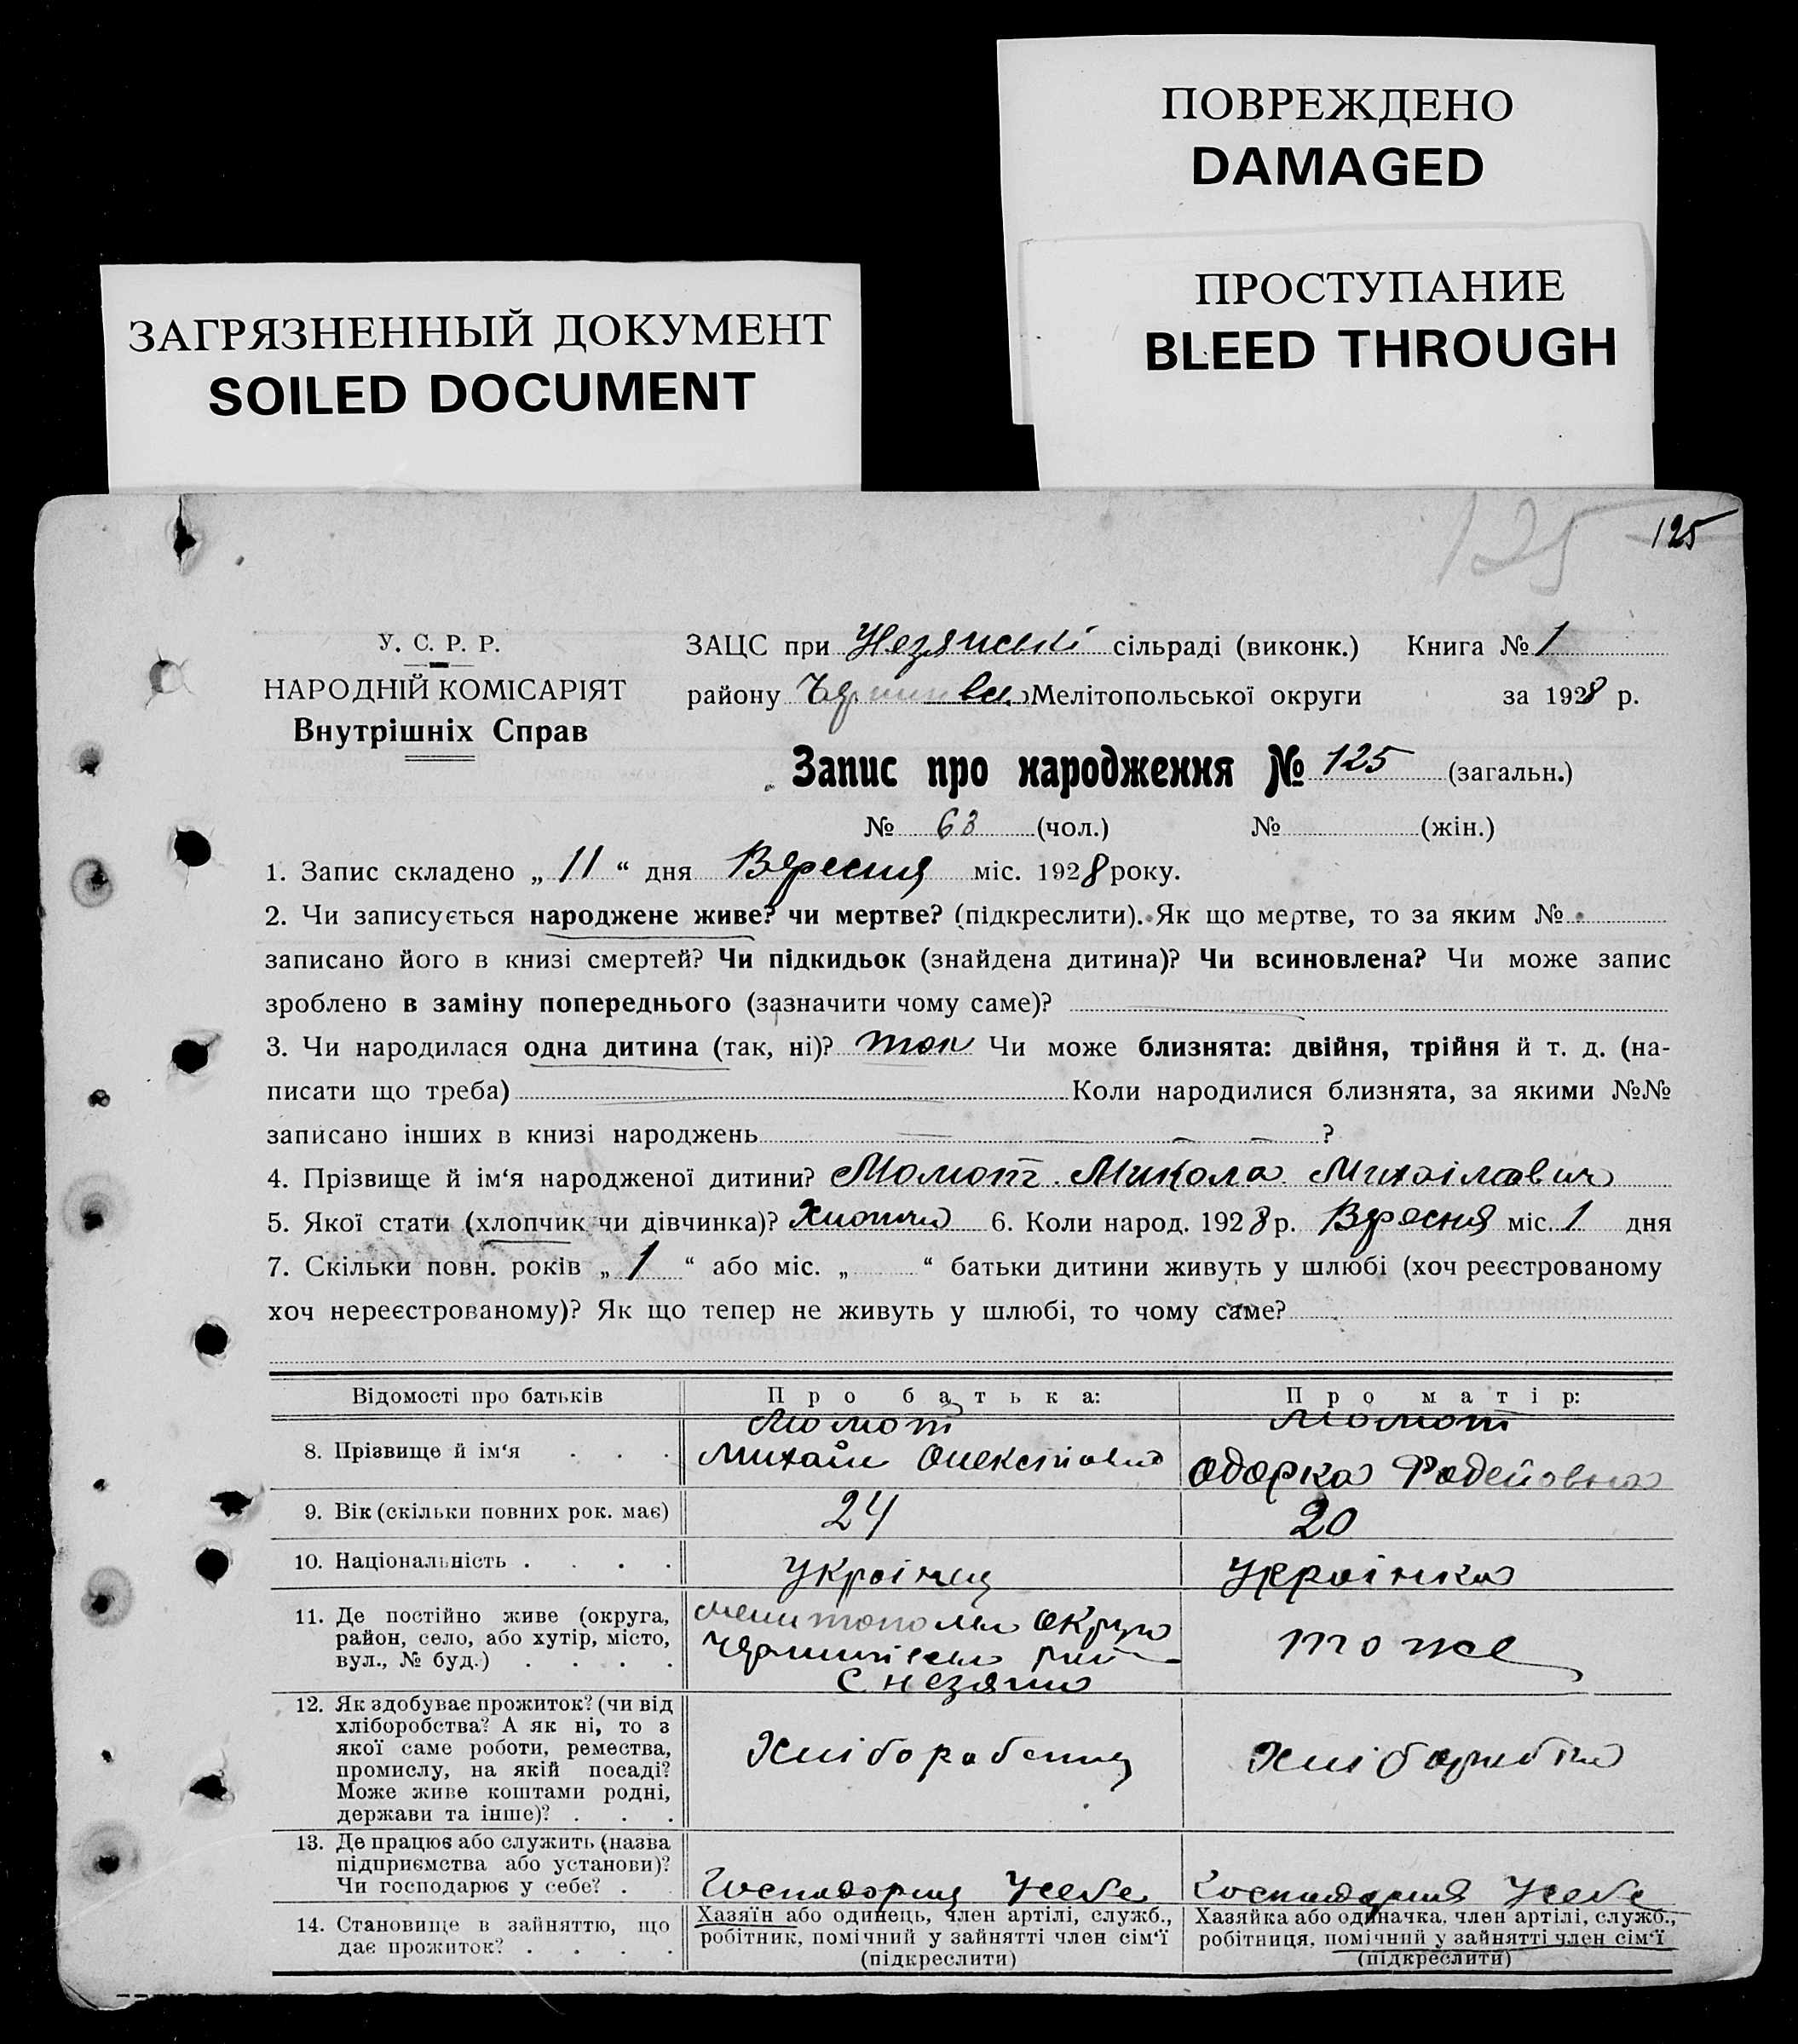 ПОВРЕЖДЕНО
DAMAGED
ПРОСТУПАНИЕ
BLEED THROUGH
ЗАГРЯЗНЕННЫЙ ДОКУМЕНТ
SOILED DOCUMENT
125 125
У. С. Р. Р.
НАРОДНІЙ КОМІСАРІЯТ
Внутрішніх Справ
ЗАЦС при Незянські сільраді (виконк.) Книга № 1
району Мелітопольської округи за 1928 р.
Запис про народження № 125 (загальн.)
№ 63 (чол.) № (жін.)
1. Запис складено „ 11 “ дня Вересня міс. 1928 року.
2. Чи записується народжене живе? чи мертве? (підкреслити). Як що мертве, то за яким №
записано його в книзі смертей? Чи підкидьок (знайдена дитина)? Чи всиновлена? Чи може запис
зроблено в заміну попереднього (зазначити чому саме)?
3. Чи народилася одна дитина (так, ні)? так Чи може близнята: двійня, трійня й т. д. (на-
писати що треба) Коли народилися близнята, за якими №№
записано інших в книзі народжень ?
4. Прізвище й ім‘я народженої дитини? Момот Микола Михаілович
5. Якої стати (хлопчик чи дівчинка)? Хлопчик 6. Коли народ. 1928 р. Вересня міс. 1 дня
7. Скільки повн. років „ 1 “ або міс. „ “ батьки дитини живуть у шлюбі (хоч реєстрованому
хоч нереєстрованому)? Як що тепер не живуть у шлюбі, то чому саме?
Відомості про батьків Про батька: Про матір:
8. Прізвище й ім‘я . . . Момот Михайл Момот Одарка
9. Вік (скільки повних рок. має) 24 20
10. Національність . . . . Українец Українка
11. Де постійно живе (округа,
район, село, або хутір, місто,
вул., № буд.) . . . .
округа
с незяма
тоже
12. Як здобуває прожиток? (чи від
хліборобства? А як ні, то з
якої саме роботи, ремества,
промислу, на якій посаді?
Може живе коштами родні,
держави та інше)? . . .
Хліборобець
13. Де працює або служить (назва
підприємства або установи)?
Чи господарює у себе? .
Господарец У себе
У себе
14. Становище в зайняттю, що
дає прожиток? . . . .
Хазяїн або одинець, член артілі, служб.,
робітник, помічний у зайнятті член сім‘ї
(підкреслити)
Хазяйка або одиначка, член артілі, служб.,
робітниця, помічний у зайнятті член сім‘ї
(підкреслити)